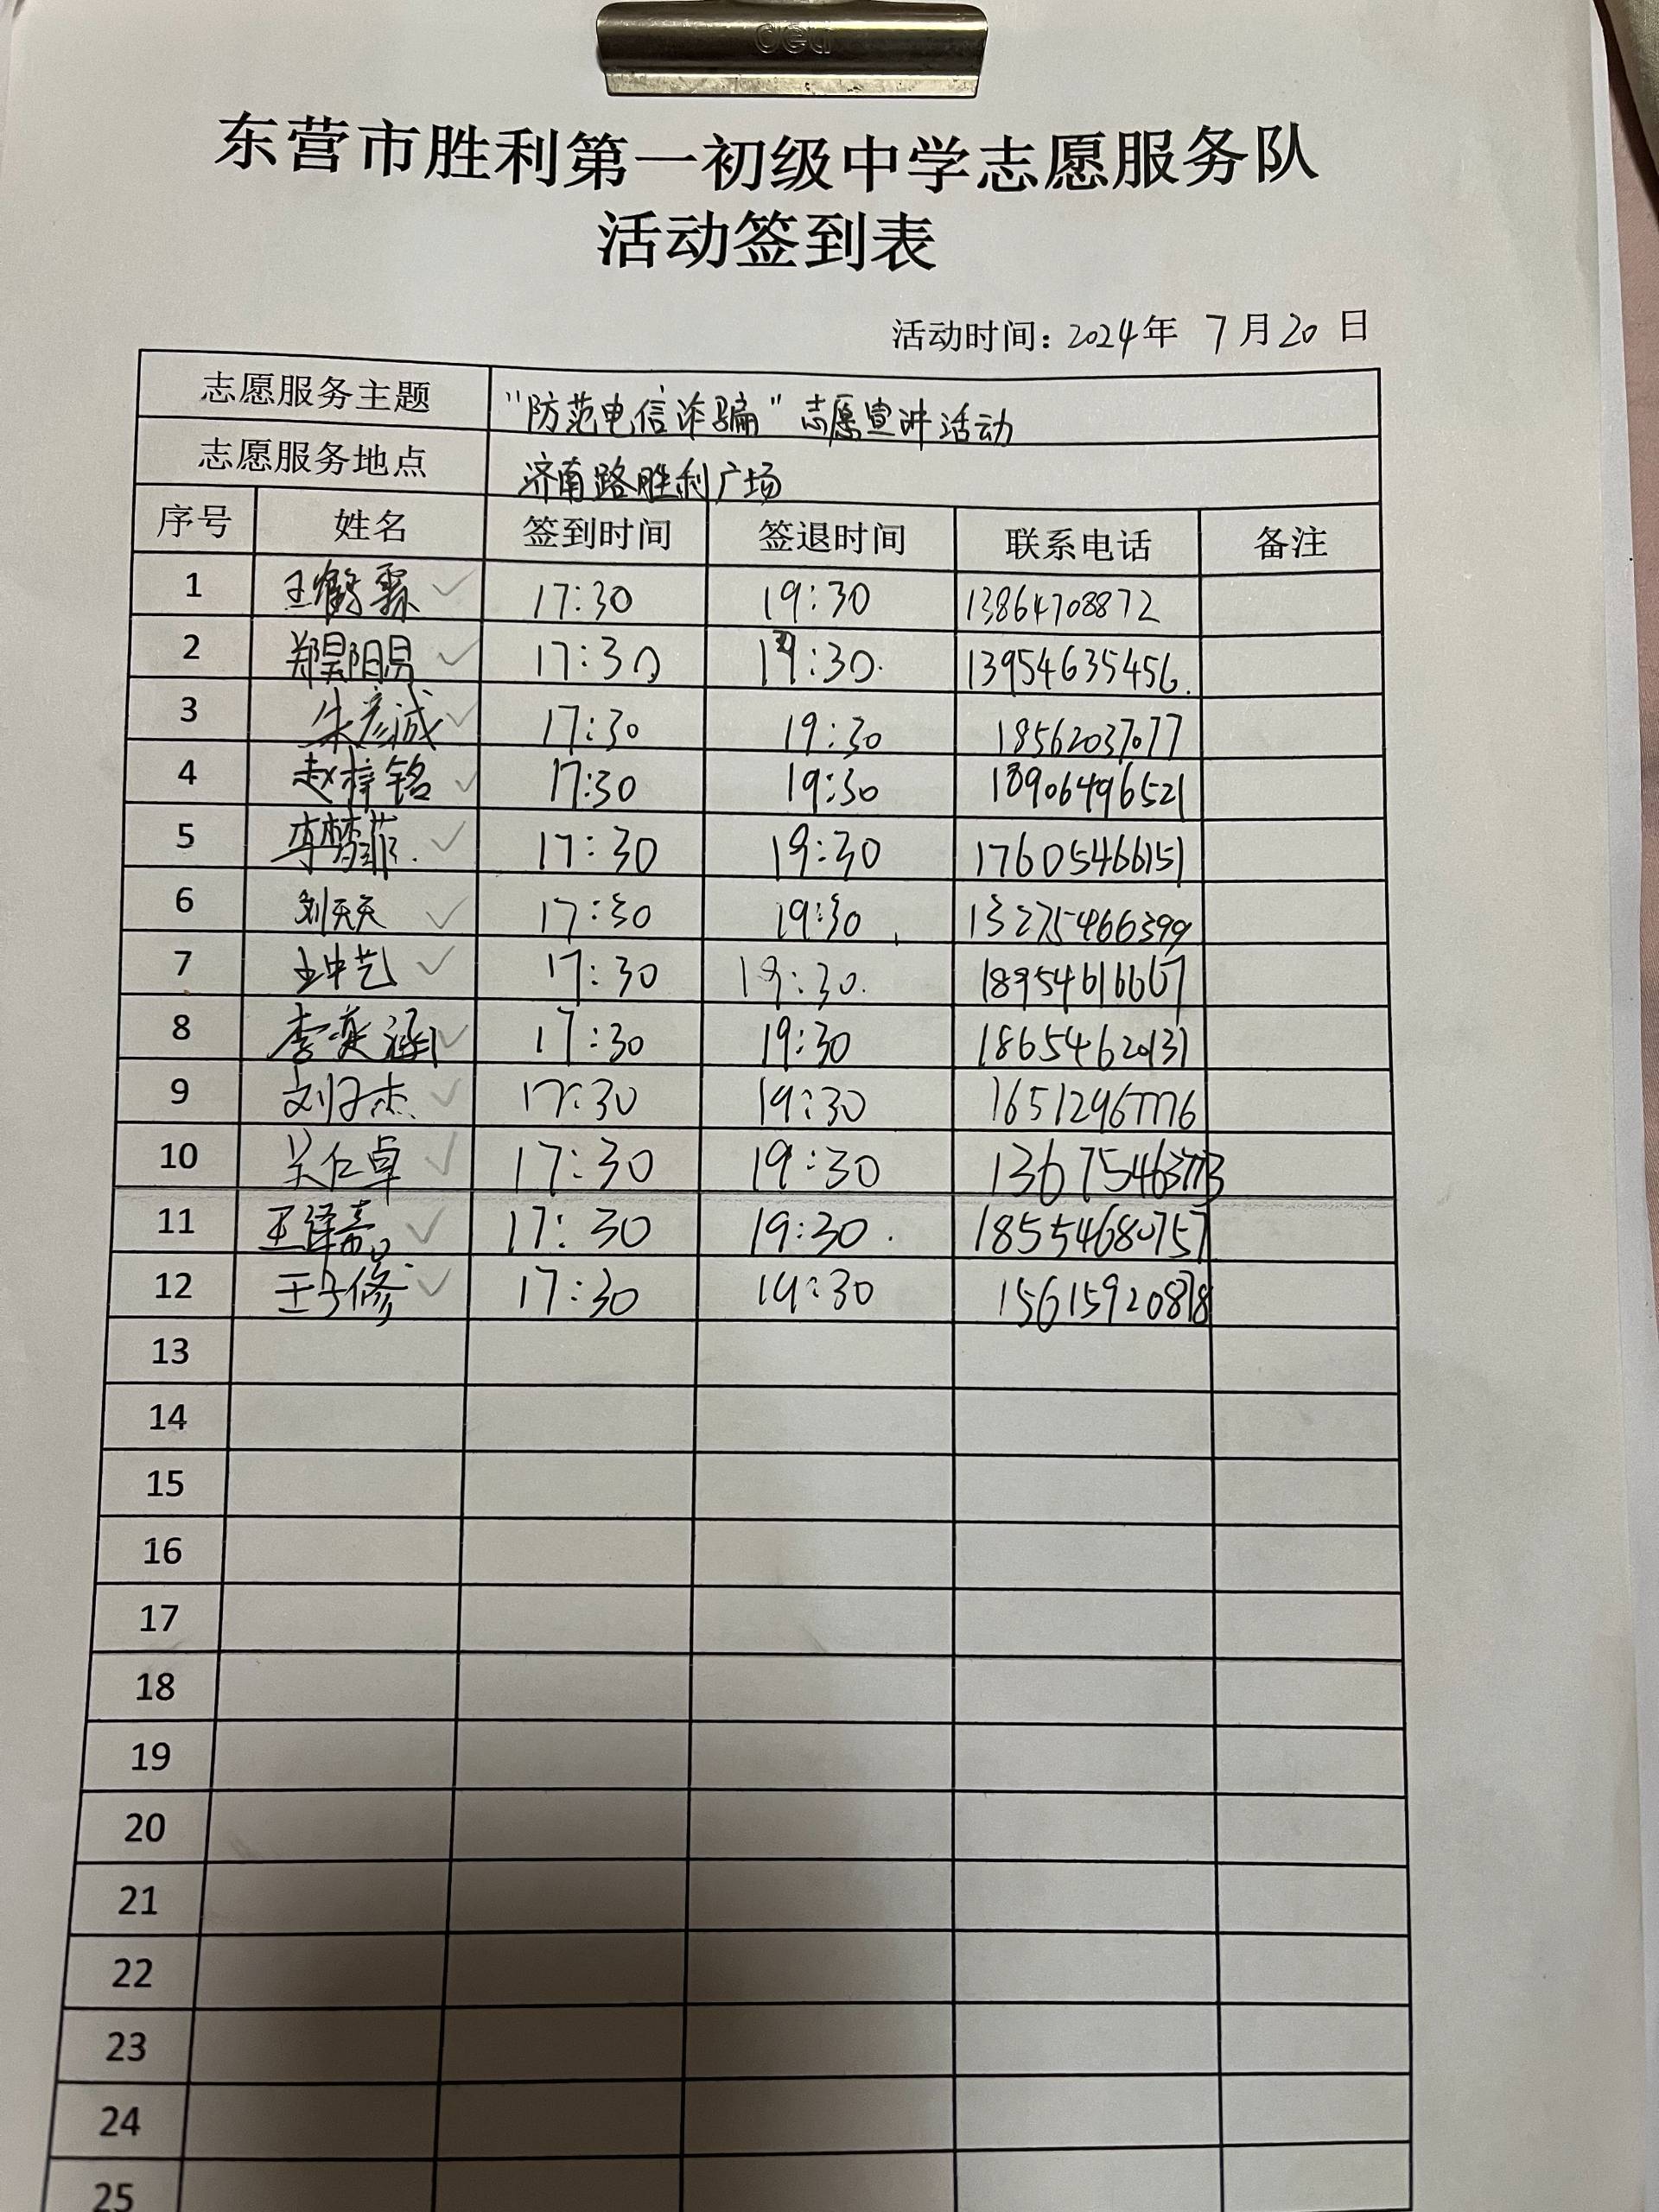 deli
东营市胜利第一初级中学志愿服务队
活动签到表
活动时间：2024年 7月20日
志愿服务主题 “防范电信诈骗”志愿宣讲活动
志愿服务地点 济南路胜利广场
序号 姓名 签到时间 签退时间 联系电话 备注
1 王鹤霖 17:30 19:30 13864708872
2 郑昊阳 17:30 19:30. 13954635456.
3 朱彦诚 17:30 19:30 18562037077
4 赵梓铭 17:30 19:30 18906496521
5 李梦菲. 17:30 19:30 17605466151
6 刘天天 17:30 19:30 13275466399
7 王中艺 17:30 19:30. 18954616607
8 李奕涵 17:30 19:30 18654620131
9 刘子杰 17:30 19:30 16512967776
10 吴仁卓 17:30 19:30 13675463773
11 王译熹 17:30 19:30. 18554680757
12 王子修 17:30 19:30 15615920878
13
14
15
16
17
18
19
20
21
22
23
24
25